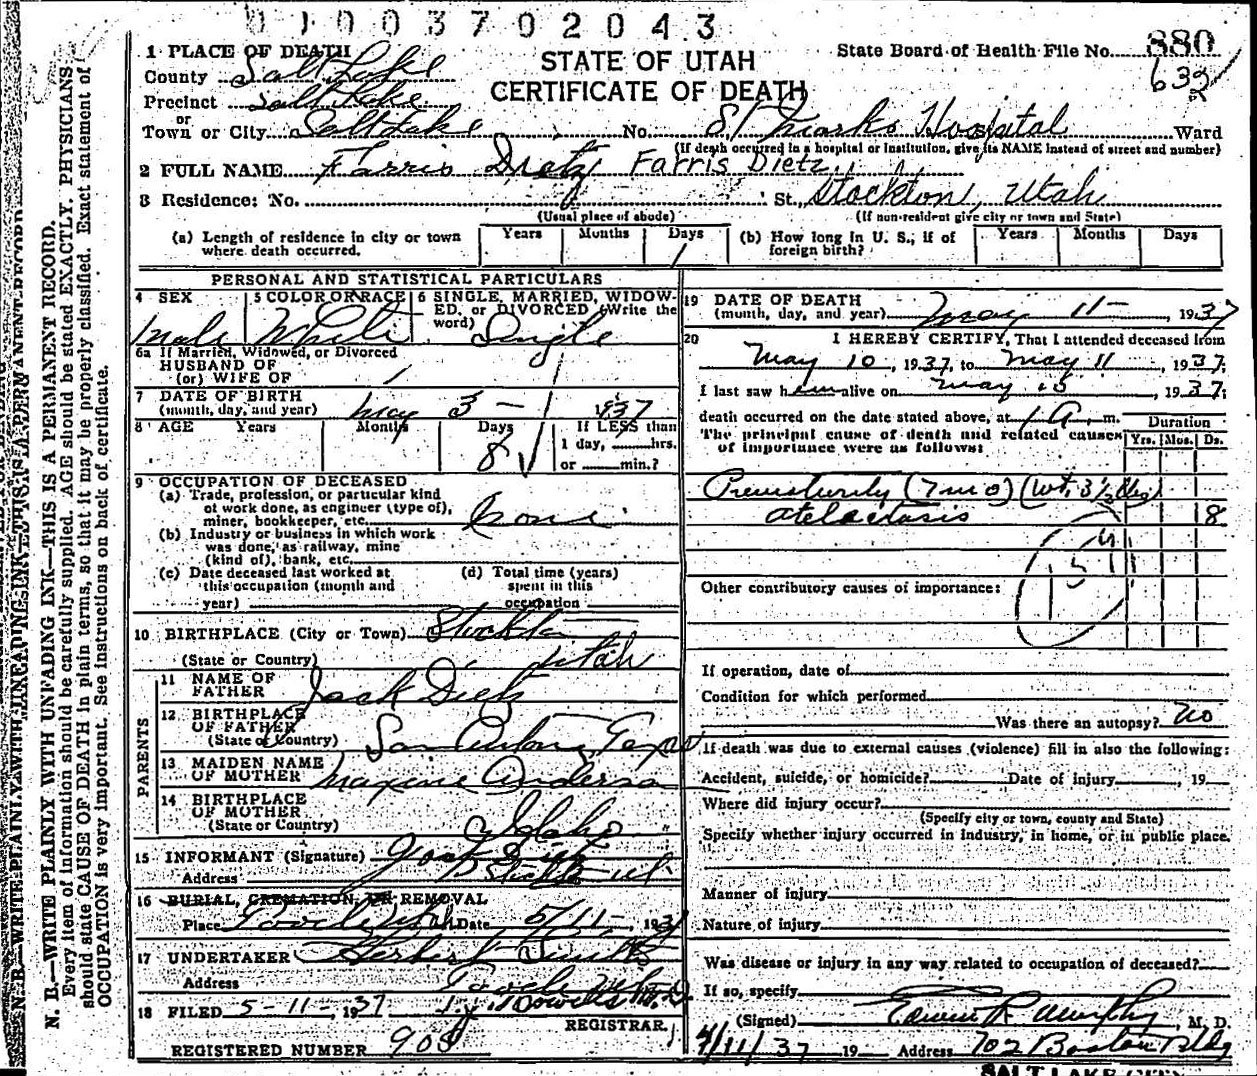 01003702043
1 PLACE OF DEATH
STATE OF UTAH
CERTIFICATE OF DEATH
State Board of Health File No. 880
County Salt Lake
632
Precinct Salt Lake
or
Town or City Salt Lake No. St Marks Hospital Ward
(If death occurred in a hospital or institution, give its NAME instead of street and number)
2 FULL NAME Farris Dietz Farris Dietz
3 Residence: No. St., Stockton, Utah
(Usual place of abode) (If non-resident give city or town and State)
(a) Length of residence in city or town where death occurred. Years Months Days 1
(b) How long in U. S.; if of foreign birth? Years Months Days
PERSONAL AND STATISTICAL PARTICULARS
4 SEX Male
5 COLOR OR RACE White
6 SINGLE, MARRIED, WIDOWED, or DIVORCED (Write the word) Single
6a If Married, Widowed, or Divorced
HUSBAND OF
(or) WIFE OF
7 DATE OF BIRTH
(month, day, and year) May 3 - 1937
8 AGE Years Months Days If LESS than
8 1 day, hrs.
or min.?
9 OCCUPATION OF DECEASED
(a) Trade, profession, or particular kind
of work done, as engineer (type of),
miner, bookkeeper, etc.
(b) Industry or business in which work
was done, as railway, mine
(kind of), bank, etc.
(c) Date deceased last worked at
this occupation (month and
year)
(d) Total time (years)
spent in this
occupation
10 BIRTHPLACE (City or Town) Stockton
(State or Country) Utah
PARENTS
11 NAME OF
FATHER Jack Dietz
12 BIRTHPLACE
OF FATHER
(State or Country) San Antonio Texas
13 MAIDEN NAME
OF MOTHER Maxine Anderson
14 BIRTHPLACE
OF MOTHER
(State or Country) Idaho
15 INFORMANT (Signature) Jack Dietz
Address Stockton Ut.
16 BURIAL, CREMATION, OR REMOVAL
Place Tooele Utah Date 5/11-, 1937
17 UNDERTAKER Herbert
Address Tooele Utah
18 FILED 5-11-, 1937
REGISTRAR.
REGISTERED NUMBER 908
19 DATE OF DEATH
(month, day, and year) May 11-, 1937
20 I HEREBY CERTIFY, That I attended deceased from
May 10, 1937, to May 11, 1937;
I last saw him alive on May 10, 1937;
death occurred on the date stated above, at 1 A. m.
The principal cause of death and related causes
of importance were as follows:
Duration
Yrs. Mos. Ds.
Prematurity (7 mo) (wt. 3 1/2
atelectasis 8
Other contributory causes of importance:
If operation, date of
Condition for which performed
Was there an autopsy? No
If death was due to external causes (violence) fill in also the following:
Accident, suicide, or homicide? Date of injury, 19
Where did injury occur?
(Specify city or town, county and State)
Specify whether injury occurred in industry, in home, or in public place.
Manner of injury
Nature of injury
Was disease or injury in any way related to occupation of deceased?
If so, specify
(Signed) Edwin R Murphy, M. D.
/11/37 19 Address 702 Boston Bldg
SALT LAKE CITY
N. B.—WRITE PLAINLY WITH UNFADING INK—THIS IS A PERMANENT RECORD.
Every item of information should be carefully supplied. AGE should be stated EXACTLY. PHYSICIANS
should state CAUSE OF DEATH in plain terms, so that it may be properly classified. Exact statement of
OCCUPATION is very important. See instructions on back of certificate.